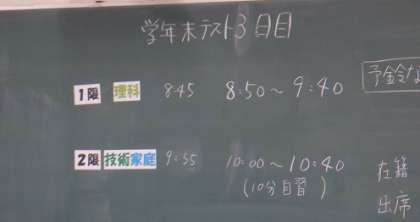 学年末テスト3日目
予金令な
1限 理科 8:45 8:50〜9:40
2限 技術家庭 9:55 10:00〜10:40
(10分自習)
在籍
出席